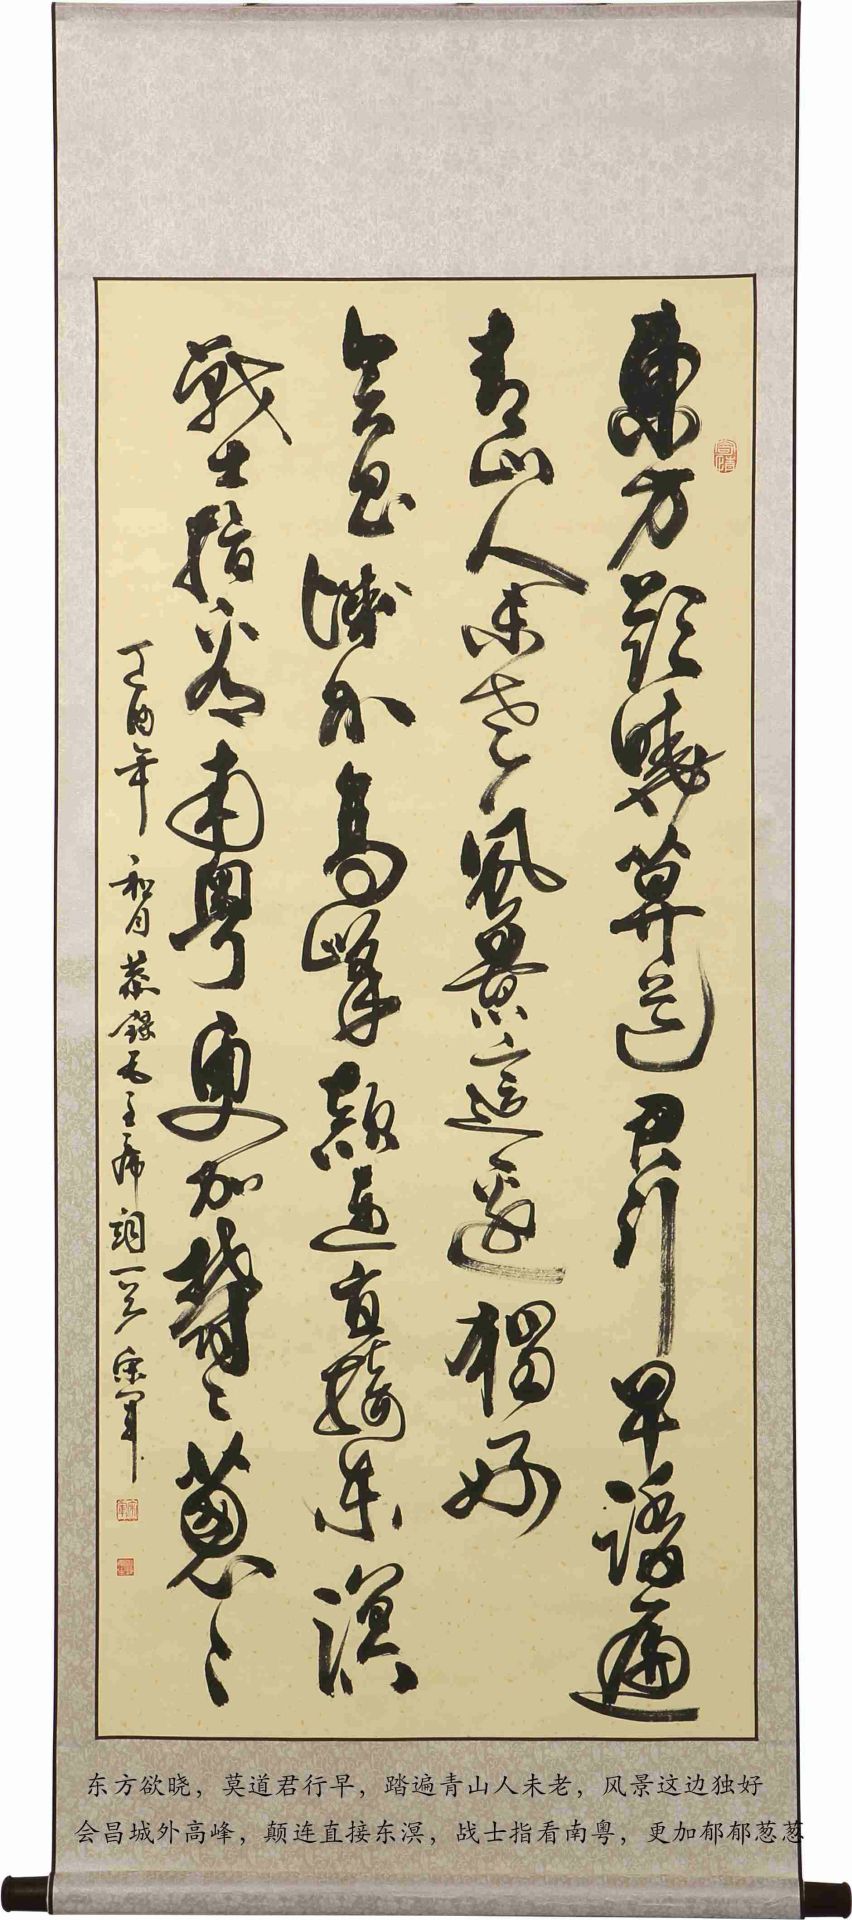 東方欲曉莫道君行早踏遍
青山人未老風景這邊獨好
會昌城外高峰顛連直接東溟
戰士指看南粵更加鬱〻蔥〻
丁酉年 和月 恭錄毛主席詞一首
东方欲晓，莫道君行早，踏遍青山人未老，风景这边独好
会昌城外高峰，颠连直接东溟，战士指看南粤，更加郁郁葱葱